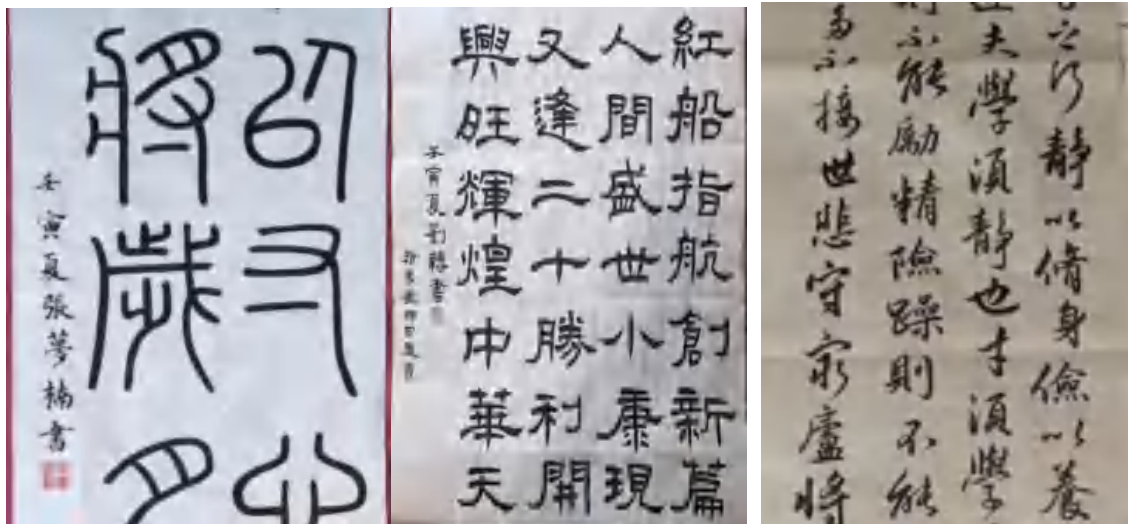 將歲月
壬寅夏張夢楠書
紅船指航創新篇
人間盛世小康現
又逢二十勝利開
興旺輝煌中華天
壬寅夏劉書
之行靜以脩身儉以養
夫學須靜也才須學
則不能勵精險躁則不能
多不接世悲守窮廬將